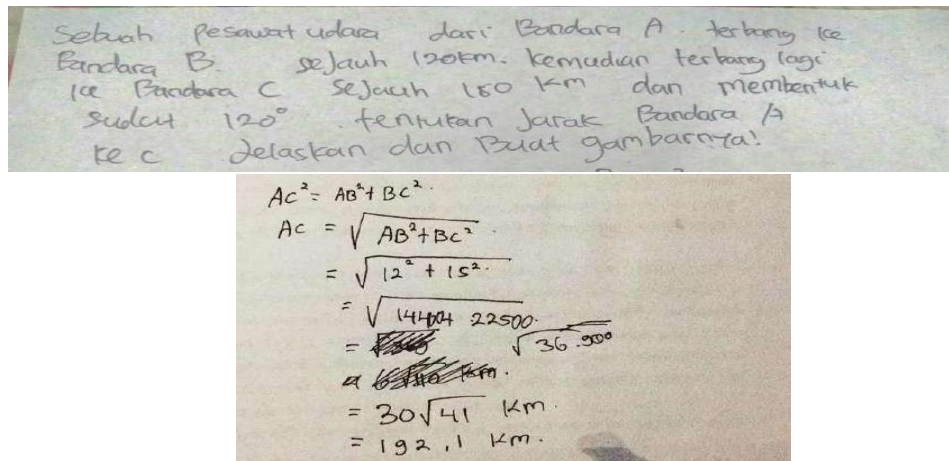 Sebuah pesawat udara dari Bandara A. terbang ke
Bandara B. sejauh 120km. kemudian terbang lagi
ke Bandara C sejauh 150 km dan membentuk
sudut 120° . tentukan jarak Bandara A
ke C Jelaskan dan Buat gambarnya!
AC² = AB² + BC².
AC = √AB²+BC².
= √12² + 15².
= √14404 22500.
= √36.900
= 30√41 km.
= 192,1 km.